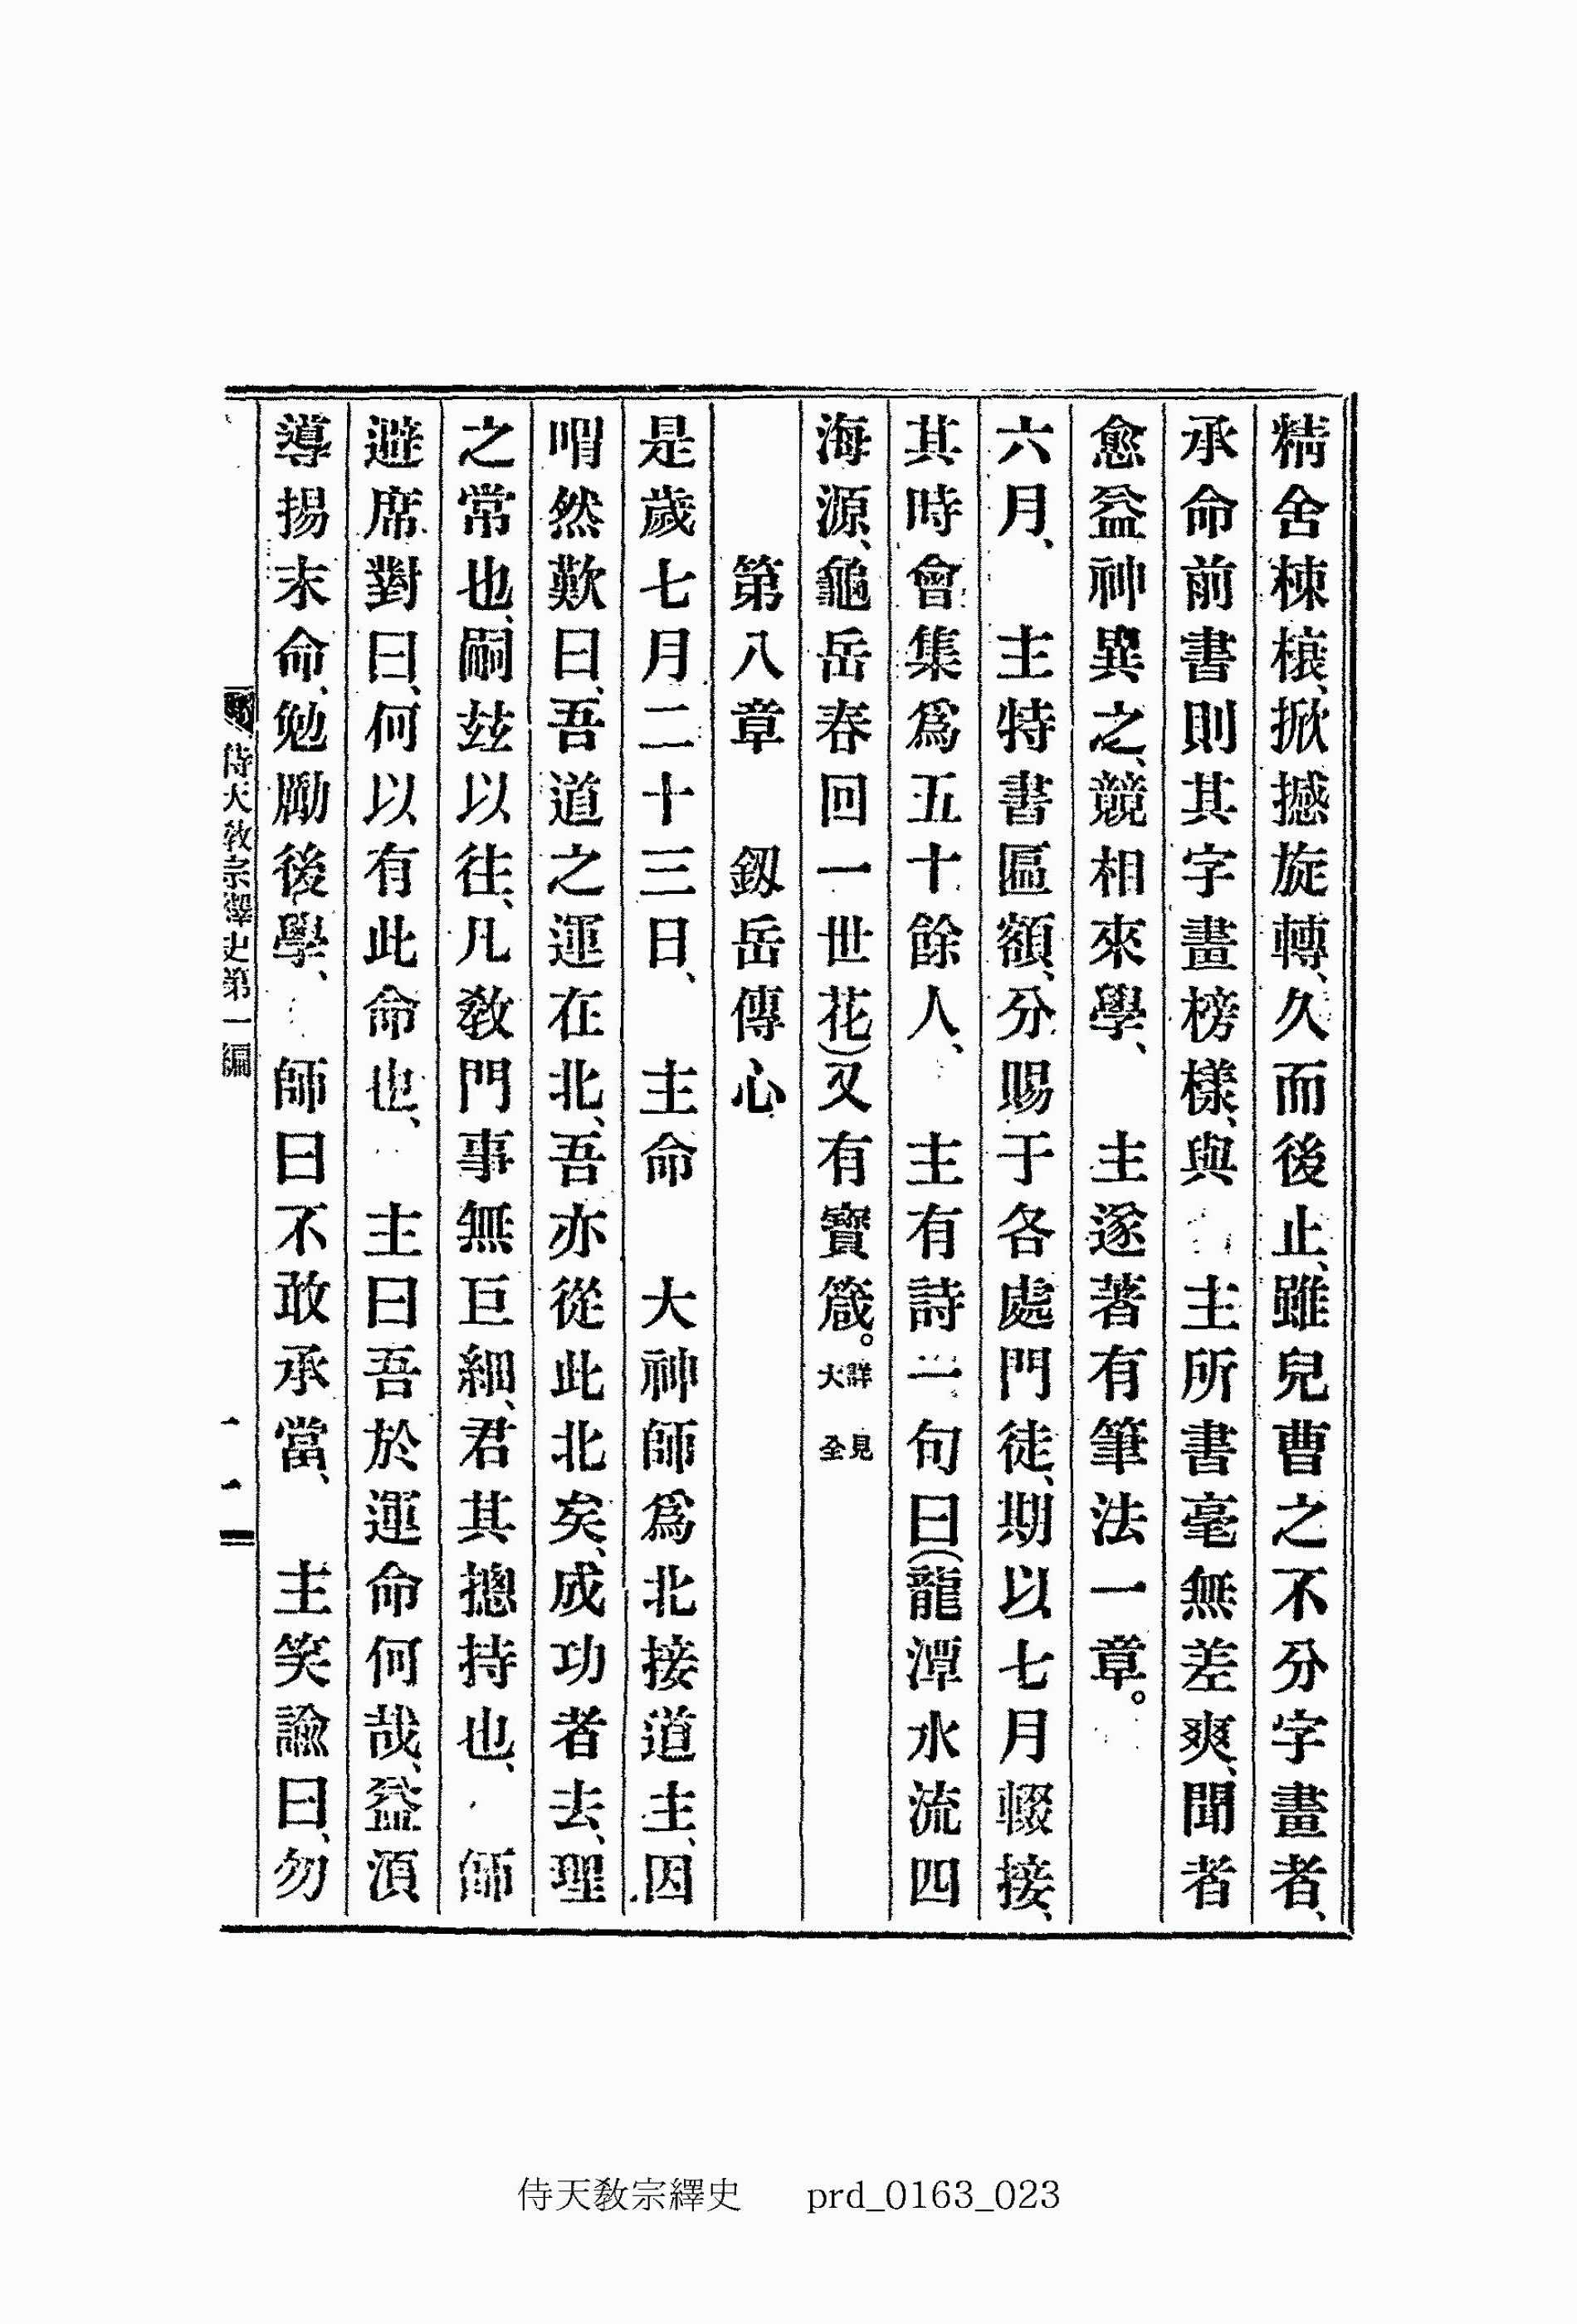 精舍棟榱、掀撼旋轉、久而後止、雖兒曹之不分字畫者、
承命前書則其字畫榜樣、與　主所書毫無差爽、聞者
愈益神異之、競相來學、　主遂著有筆法一章。
六月、　主特書匾額、分賜于各處門徒、期以七月輟接、
其時會集爲五十餘人、　主有詩二句曰(龍潭水流四
海源、龜岳春回一世花)又有寶箴。詳見大全
第八章　釼岳傳心
是歲七月二十三日、　主命　大神師爲北接道主、因
喟然歎曰、吾道之運在北、吾亦從此北矣、成功者去、理
之常也、嗣玆以往、凡敎門事無巨細、君其摠持也、　師
避席對曰、何以有此命也、　主曰吾於運命何哉、益須
導揚末命、勉勵後學、　師曰不敢承當、　主笑諭曰、勿
侍天敎宗繹史第一編
侍天敎宗繹史　prd_0163_023